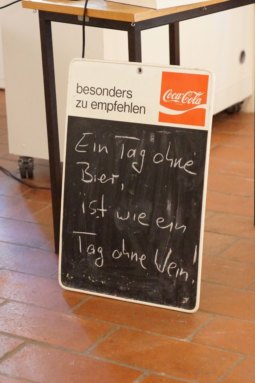 besonders
zu empfehlen
Coca-Cola
Ein Tag ohne
Bier,
ist wie ein
Tag ohne Wein!